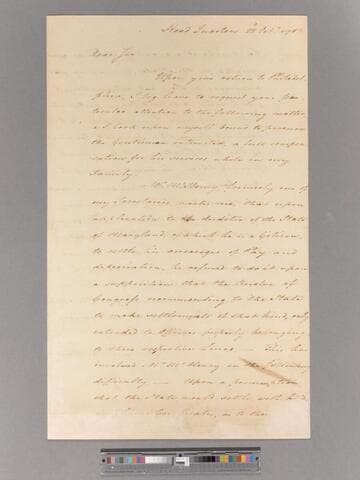 Head Quarters
Dear Sir
Upon your return to Philadel
phia, I beg leave to request your par
ticular attention to the following matter
as I look upon myself bound to procure
the Gentleman interested, a full compen
sation for his services while in my
Family.
Mr. McHenry formerly one of
my Secretaries writes me, that upon
application to the Auditor of the State
of Maryland, of which he is a Citizen,
to settle his arrearages of Pay and
depreciation, he refused to do it upon
a supposition that the Resolve of
Congress recommending to the States
to make settlements of that kind, only
extended to Officers properly belonging
to their respective Lines. This has
involved Mr. McHenry in the following
difficulty. Upon a presumption
that the State would settle with him